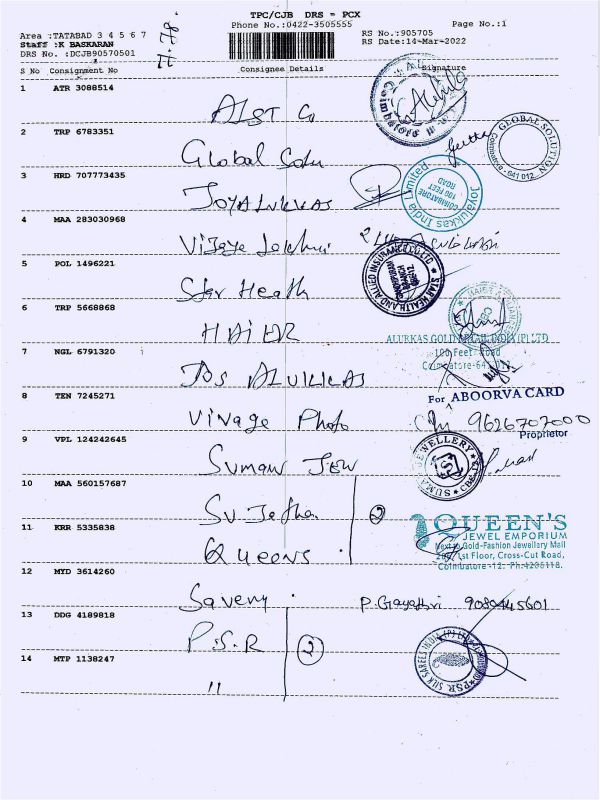 TPC/CJB DRS - PCX
Phone No.:0422-3505555
Page No.:1
Area :TATABAD 3 4 5 6 7
Staff :K BASKARAN
DRS No. :DCJB90570501
RS No.:905705
RS Date:14-Mar-2022
S No Consignment No Consignee Details Signature
1 ATR 3088514
2 TRP 6783351 Global
GLOBAL SOLUTION
Coimbatore - 641 012.
3 HRD 707773435 JOYALUKKAS
Joyalukkas India Limited
COIMBATORE
100 FEET
ROAD
4 MAA 283030968 Vijaya
5 POL 1496221 Star Health
STAR HEALTH AND ALLIED INSURANCE CO LTD
6 TRP 5668868 HAIER
ALUKKAS GOLD INDIA (P) LTD
100 Feet Road
7 NGL 6791320 Jos ALUKKAS
For ABOORVA CARD
8 TEN 7245271 Vinage Photo 9626707000
Proprietor
9 VPL 124242645 SUMAN JEW
SUMAN JEWELLERY
10 MAA 560157687 2
11 KRR 5335838 Queens
QUEEN'S
JEWEL EMPORIUM
Next to Gold-Fashion Jewellery Mall
1st Floor, Cross-Cut Road,
Coimbatore -12. Ph:4206118.
12 MYD 3614260 P. Gayathri 9080445601
13 DDG 4189818 P.S.R 2
PSR SILK SAREES INDIA (P) LTD
14 MTP 1138247 "